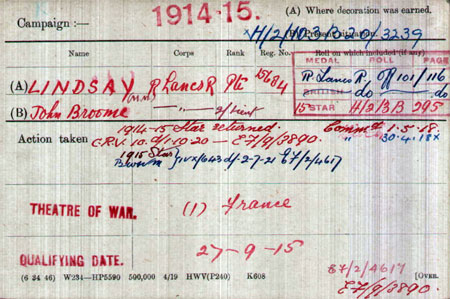 Campaign :— 1914-15. (A) Where decoration was earned.
(B) Present situation.
H/2/103/B20/3239
Name Corps Rank Reg. No. Roll on which included (if any)
MEDAL ROLL PAGE
(A) LINDSAY (M.M.) R Lancs R Pte 15684 R. Lancs R. Off 101/116
BRITISH do do
(B) John Broome —"— 2/Lieut 15 STAR H/2/3B 295
Action taken 1914-15 Star returned. Comm^d 1.5.18.
C.R.V. 10. 9/1.19.20 — E7/9/3890. " 30.4.18
1915 Star IVX/643 d/ 2-7-21 E7/2/4617
THEATRE OF WAR. (1) France
QUALIFYING DATE. 27-9-15
E7/2/4617
(6 34 46) W234—HP5590 500,000 4/19 HWV(P240) K608 [OVER.
E7/9/3890.